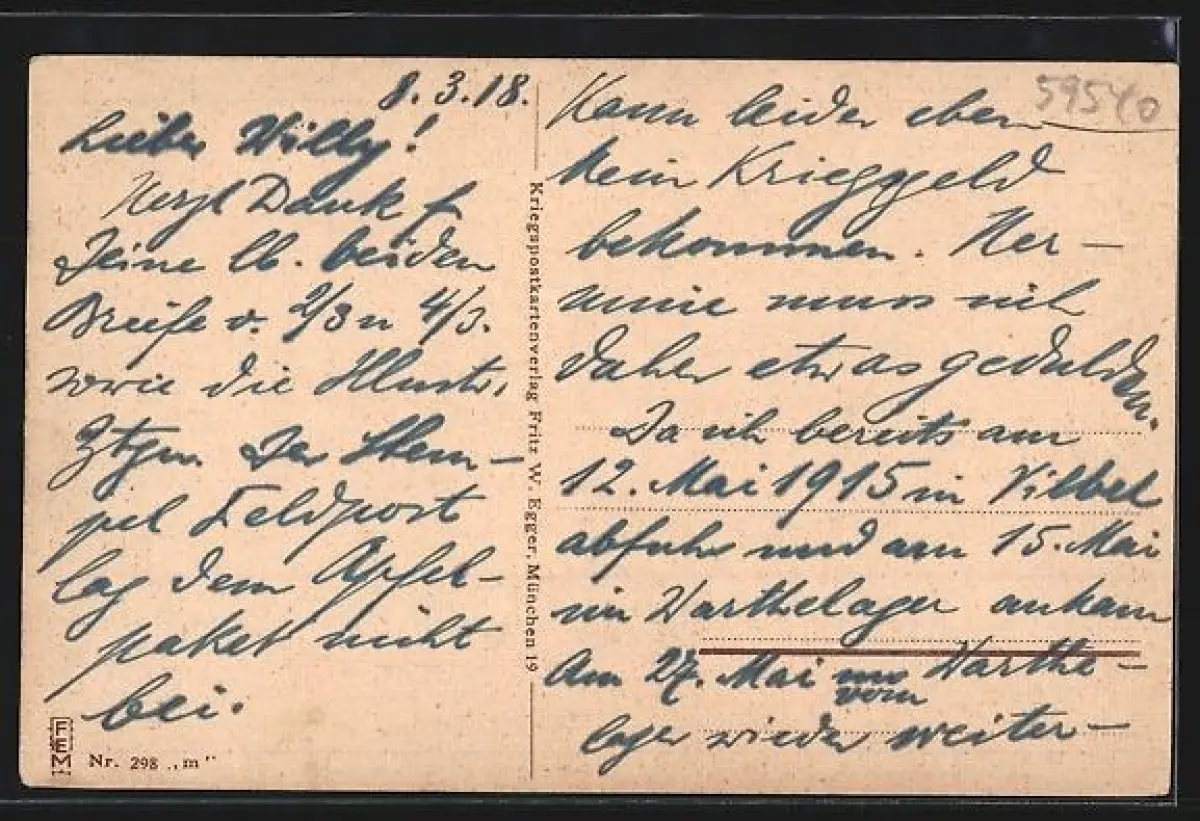 8. 3. 18.
Lieber Willy!
Herzl Dank f
Deine lb. beiden
Briefe v. 2/3 u 4/3.
sowie die Illustr.
Ztgen. Der Stem-
pel Feldpost
lag dem Apfel-
paket nicht
bei.
FEM
Nr. 298 „m“
Kriegspostkartenverlag Fritz W. Egger, München 19
59540
Kann leider eben
kein Kriegsgeld
bekommen. Her-
mine muss sich
daher etwas gedulden.
Da ich bereits am
12. Mai 1915 in Vilbel
abfuhr und am 15. Mai
im Warthelager ankam
Am 27. Mai vom Warthe-
lager wieder weiter-